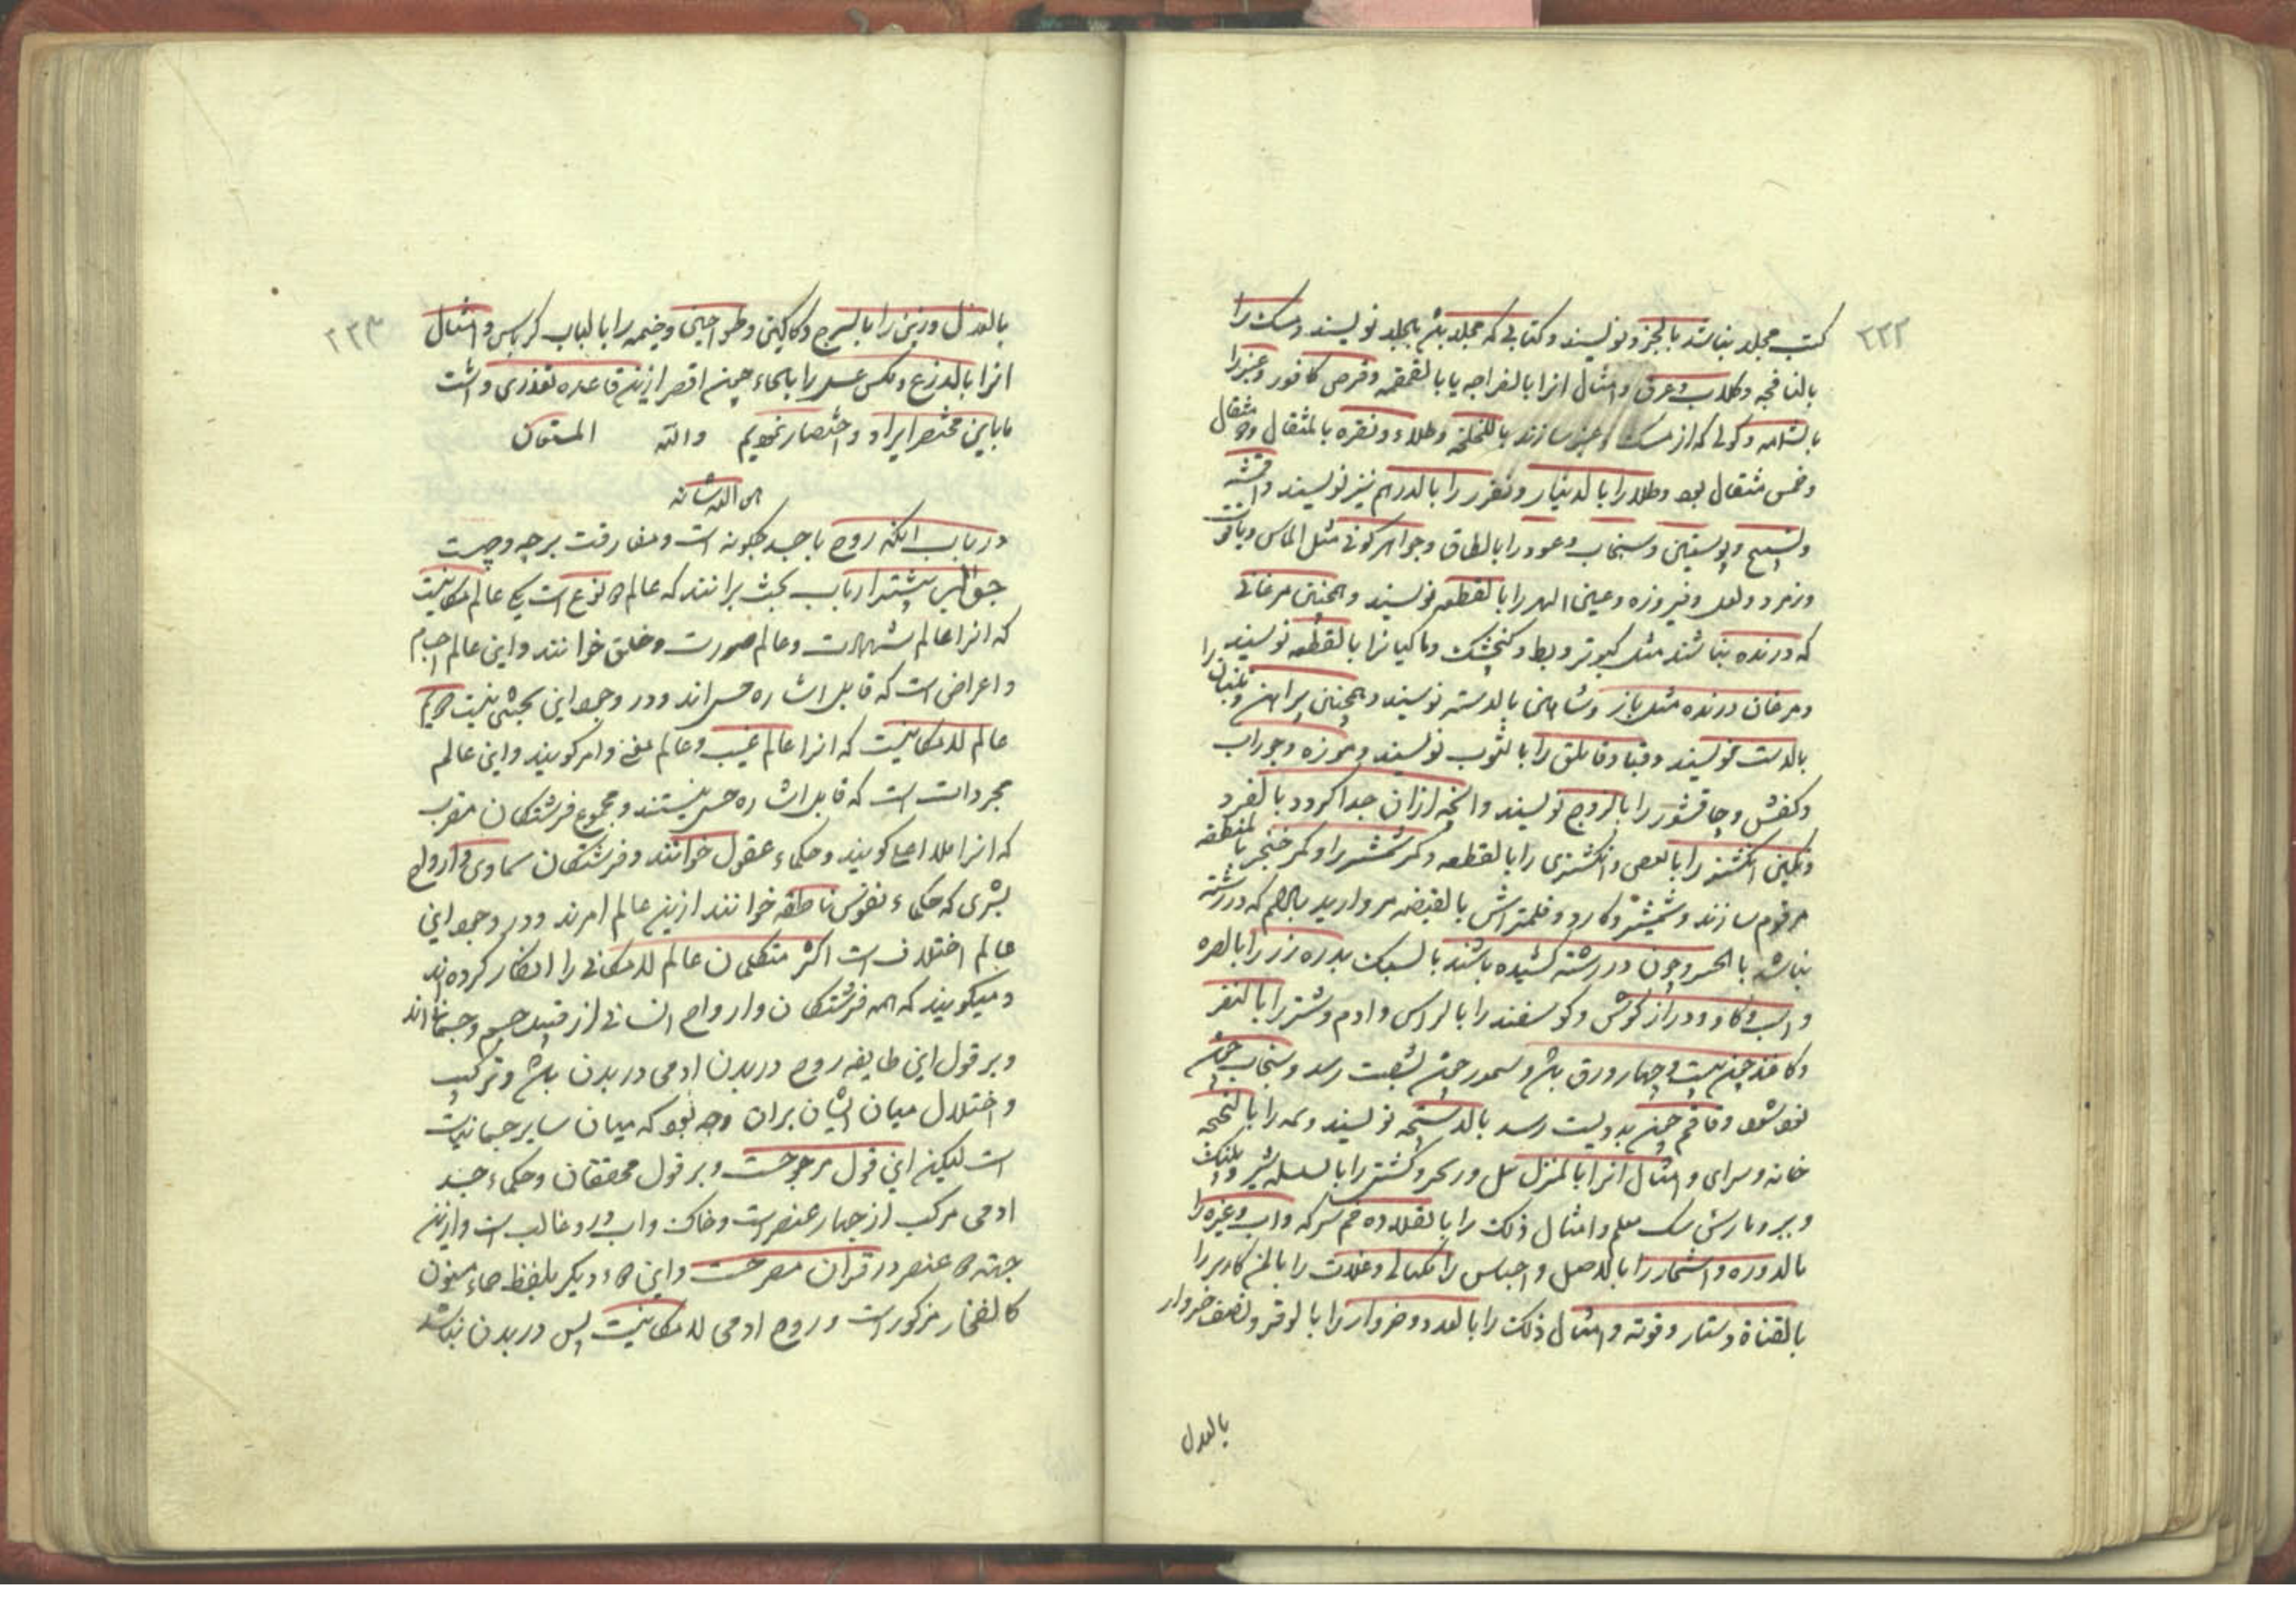 ۲۲۲
کتب مجلد نباشد بالجزو نویسند و کتابی که مجلد باشد بالجلد نویسند و مسک را
بالنافجه و کلاب و عرق و امثال انرا بالفراجه یا بالقمقمه و قرص کافور و عنبر را
بالشمامه و کوئی که از مسک و عنبر سازند باللخلخه و طلاء و نقره بالمثقال و مثقال
و خمس مثقال بود و طلا را بالدینار و نقره را بالدرهم نیز نویسند و اقمشه
و نسیج و پوستین و سنجاب و عود را بالطاق و جواهر کونی مثل الماس و یاقوت
و زمرد و لعل و فیروزه و عین الهر را بالقطعه نویسند و همچنین مرغانی
که درنده نباشند مثل کبوتر و بط و کنجشک و ماکیانرا بالقطعه نویسند
و مرغان درنده مثل باز و شاهین بالدسته نویسند و همچنین پیراهن و تنبان را
بالدست نویسند و قبا و قاتلق را بالثوب نویسند و موزه و جوراب
و کفش و چاقشور را بالزوج نویسند و انچه ازان جدا کردد بالفرد
و نکین انکشتر را بالفص و انکشتری را بالقطعه و کمر شمشیر را و کمر خنجر بالمنطقه
مرقوم سازند و شمشیر و کارد و قلمتراش بالقبضه مروارید بالاسم که در رشته
نباشد بالحسر و چون در رشته کشیده باشند بالسبک بدره زر را بالصره
و اسب و کاو و دراز کوش و کوسفند را بالراس و ادم و شتر را بالنفر
و کاغذ چون بیست و چهار ورق باشد و سمور چون بشصت رسد و سنجاب
نود شود و قاقم چون بدویست رسد بالدستجه نویسند و نمه را بالتخته
خانه و سرای و امثال انرا بالمنزل و کشتی را بالسلسله شیر و پلنک
و ببر و پارس و سک معلم و امثال ذلک را بالقلاده خم سرکه و اب و غیره را
بالدوره و اشجار را بالاصل و اجناس را بمکیالی و غلات را بالمن کاریز را
بالقناة دستار و فوته و امثال ذلک را بالعدد و خروار را بالوقر و نصف خروار
بالعدل
۲۲۳
بالعدل و زین را بالسرج دکاکین و طواحین و خیمه را بالباب کرباس و امثال
انرا بالذرع و مکس عسل را بالحماء چون اقصر ازین قاعده تعذری داشت
ما باین مختصر ایراد و اختصار نمودیم والله المستعان
در باب انکه روح با جسد چکونه است و مفارقت بر چه وجهست
جواب بیشتر ارباب بحث برانند که عالم دو نوع است یکی عالم مکانیت
که انرا عالم شهادت و عالم صورت و خلق خوانند و این عالم اجسام
و اعراض است که قابل اشاره حسی اند و در وجود این بحثی نیست دویم
عالم لامکانیت که انرا عالم غیب و عالم معنی و امر کویند و این عالم
مجردات است که قابل اشاره حسی نیستند و مجموع فرشتکان مقرب
که انرا ملاء اعلی کویند و حکماء عقول خوانند و فرشتکان سماوی و ارواح
بشری که حکماء نفوس ناطقه خوانند ازین عالم امرند و در وجود این
عالم اختلاف است اکثر متکلمان عالم لامکانی را انکار کرده اند
و میکویند که همه فرشتکان و ارواح انسانی از قبیل جسم و جسمانی اند
و بر قول این طایفه روح در بدن ادمی در بدن باشد و ترکیب
و اختلال میان ایشان بران وجه بود که میان سایر جسمانیات
است لیکن این قول مرجوحست و بر قول محققان و حکماء جسد
ادمی مرکب از چهار عنصر است و خاک و اب در و غالب است و ازین
جهته دو عنصر در قران مصرحست و این دو دیکر بلفظ حماء مسنون
کالفخار مذکور است و روح ادمی لامکانیت پس در بدن نباشد